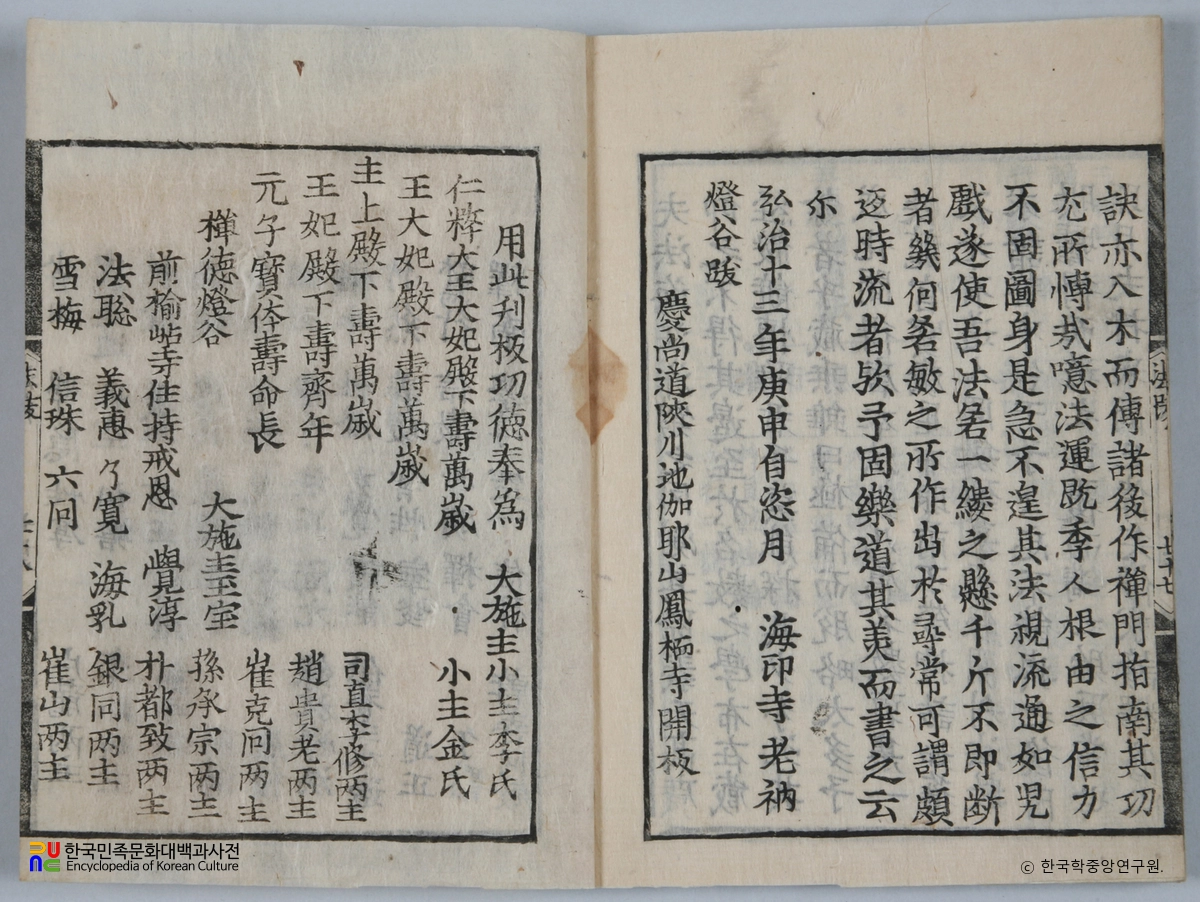 訣亦入木而傳諸後作禪門指南其功
尤所愽哉噫法運旣季人根由之信力
不固圖身是急不遑其法視流通如兒
戲遂使吾法若一縷之懸千斤不即断
者幾何若敏之所作出於尋常可謂頗
迈時流者欤予固樂道其美而書之云
尒
弘治十三年庚申自恣月 海印寺老衲
燈谷跋
慶尚道陜川地伽耶山鳳栖寺開板
用此刋板功德奉爲 大施主小主李氏
仁粹大王大妃殿下壽萬歲 小主金氏
王大妃殿下壽萬歲
主上殿下壽萬歲 司直李修两主
王妃殿下壽齊年 趙貴老两主
元子寶体壽命長 崔克同两主
禅德燈谷 大施主至宝 孫承宗两主
前楡岾寺住持戒恩 覺淳 朴都致两主
法聡 義惠 了寬 海乳 銀同两主
雪梅 信珠 六同 崔山两主
한국민족문화대백과사전
Encyclopedia of Korean Culture
ⓒ 한국학중앙연구원.